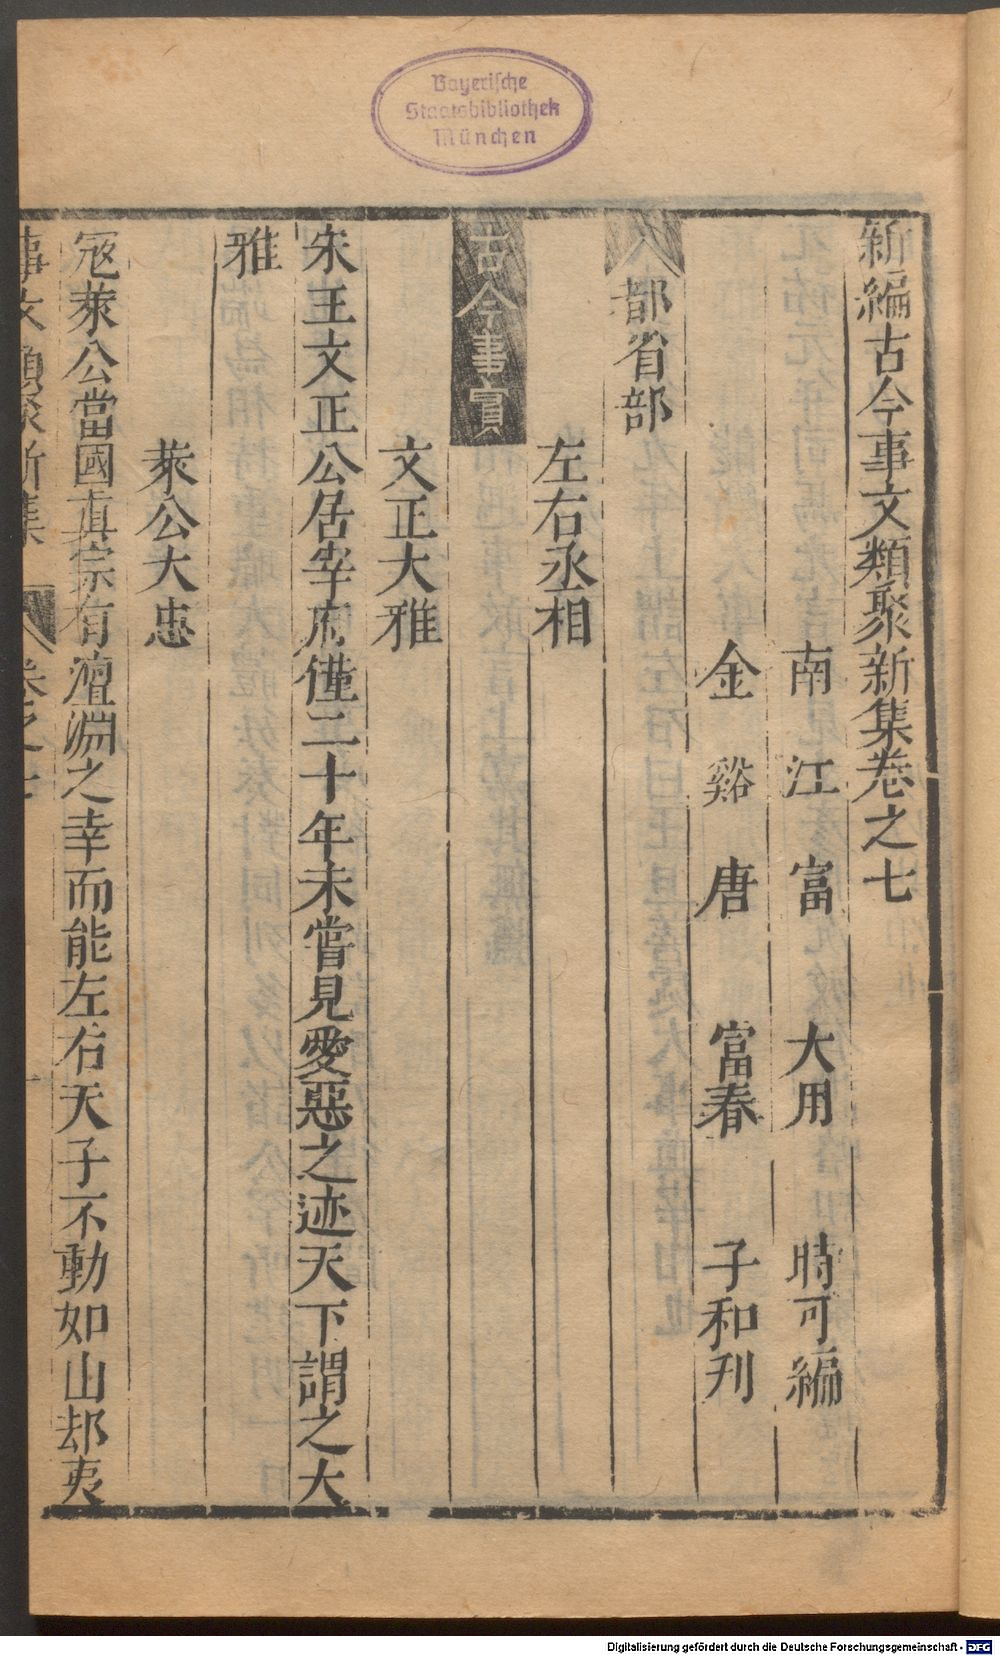 Bayerische
Staatsbibliothek
München
新編古今事文類聚新集卷之七
南江富大用時可編
金谿唐富春子和刋
都省部
左右丞相
古今事實
文正大雅
宋王文正公居宰府僅二十年未嘗見愛惡之迹天下謂之大
雅
萊公大忠
寇萊公當國真宗有澶淵之幸而能左右天子不動如山却夷
事文類聚新集 卷之七
Digitalisierung gefördert durch die Deutsche Forschungsgemeinschaft - DFG